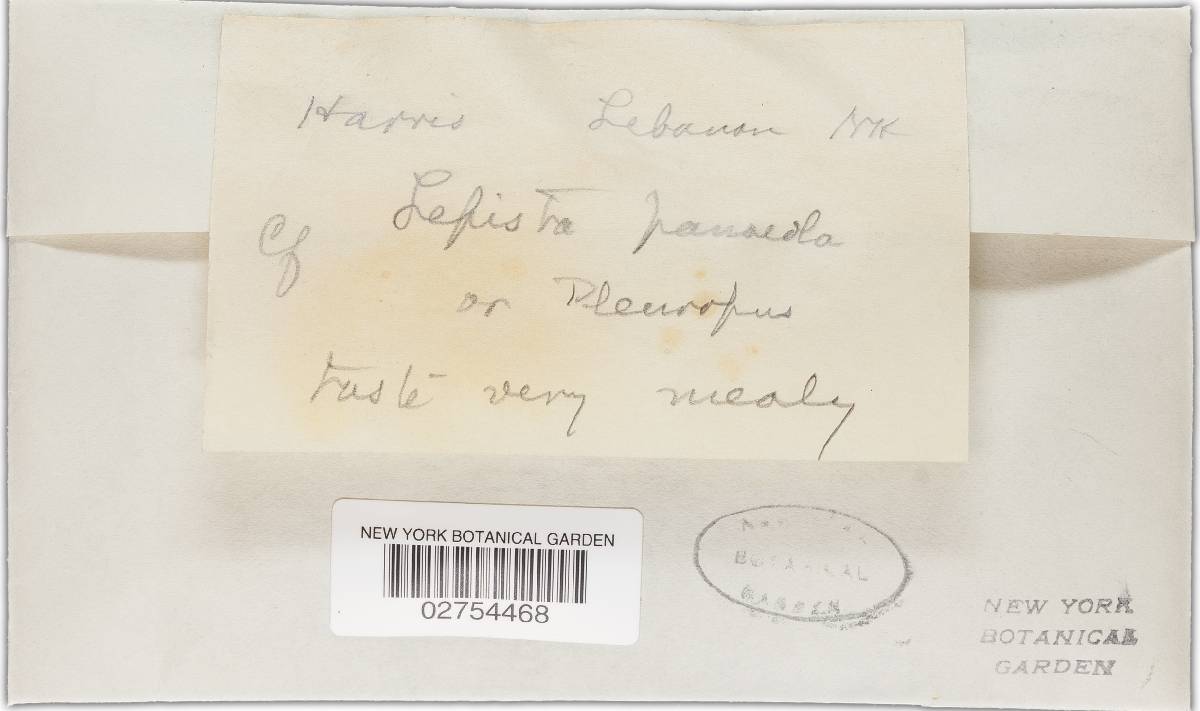 Harris Lebanon NH
Cf Lepista panaeola
or Pleuropus
taste very mealy
NEW YORK BOTANICAL GARDEN
02754468
BOTANICAL
GARDEN
NEW YORK
BOTANICAL
GARDEN